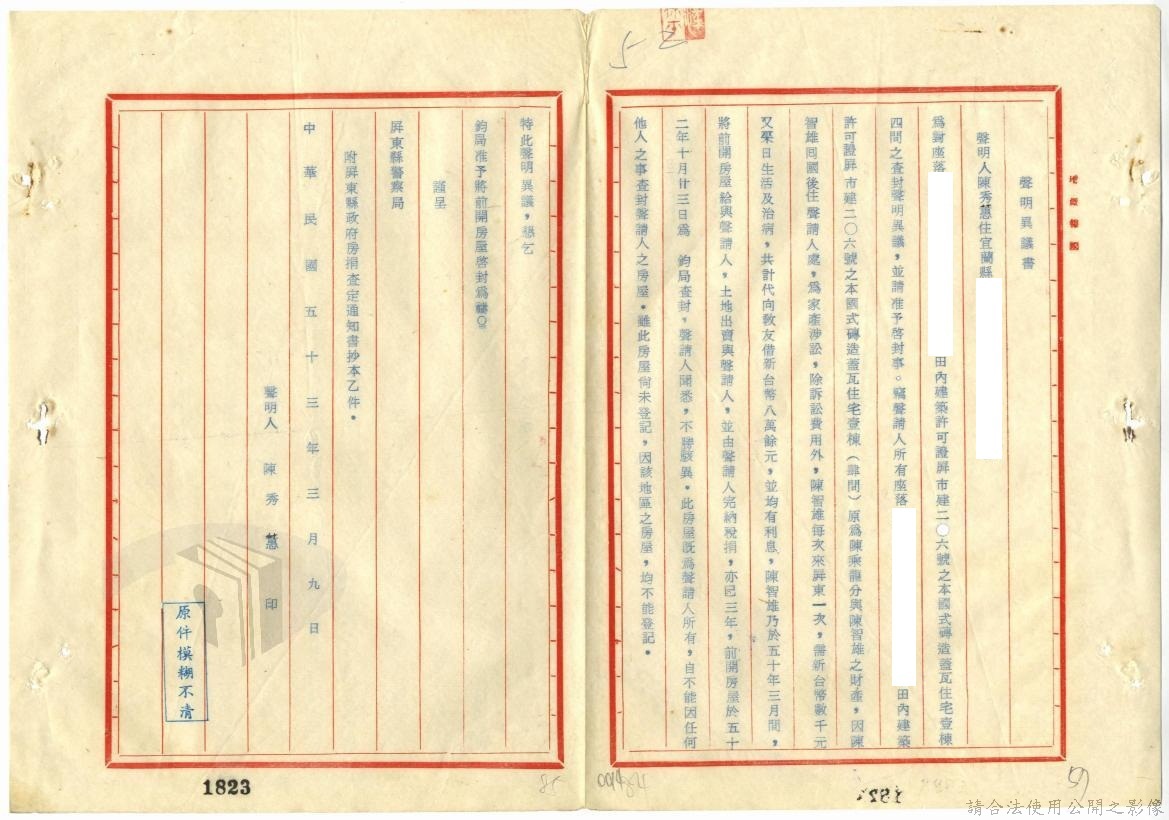 聲明異議書
聲明人陳秀慧住宜蘭縣
為對座落
田內建築許可證屏市建二〇六號之本國式磚造蓋瓦住宅壹棟
四間之查封聲明異議，並請准予啓封事。竊聲請人所有座落
田內建築
許可證屏市建二〇六號之本國式磚造蓋瓦住宅壹棟（肆間）原為陳乘龍分與陳智雄之財產，因陳
智雄囘國後住聲請人處，為家產涉訟，除訴訟費用外，陳智雄每次來屏東一次，需新台幣數千元
又聚日生活及治病，共計代向敎友借新台幣八萬餘元，並均有利息，陳智雄乃於五十年三月間，
將前開房屋給與聲請人，土地出賣與聲請人，並由聲請人完納稅捐，亦已三年，前開房屋於五十
二年十月廿三日為　鈞局查封，聲請人聞悉，不勝駭異。此房屋既為聲請人所有，自不能因任何
他人之事查封聲請人之房屋。雖此房屋尙未登記，因該地區之房屋，均不能登記。
特此聲明異議，懇乞
鈞局准予將前開房屋啓封為禱〇
謹呈
屏東縣警察局
附屏東縣政府房捐查定通知書抄本乙件。
中華民國五十三年三月九日
聲明人　陳秀慧　印
原件模糊不清
1823
請合法使用公開之影像